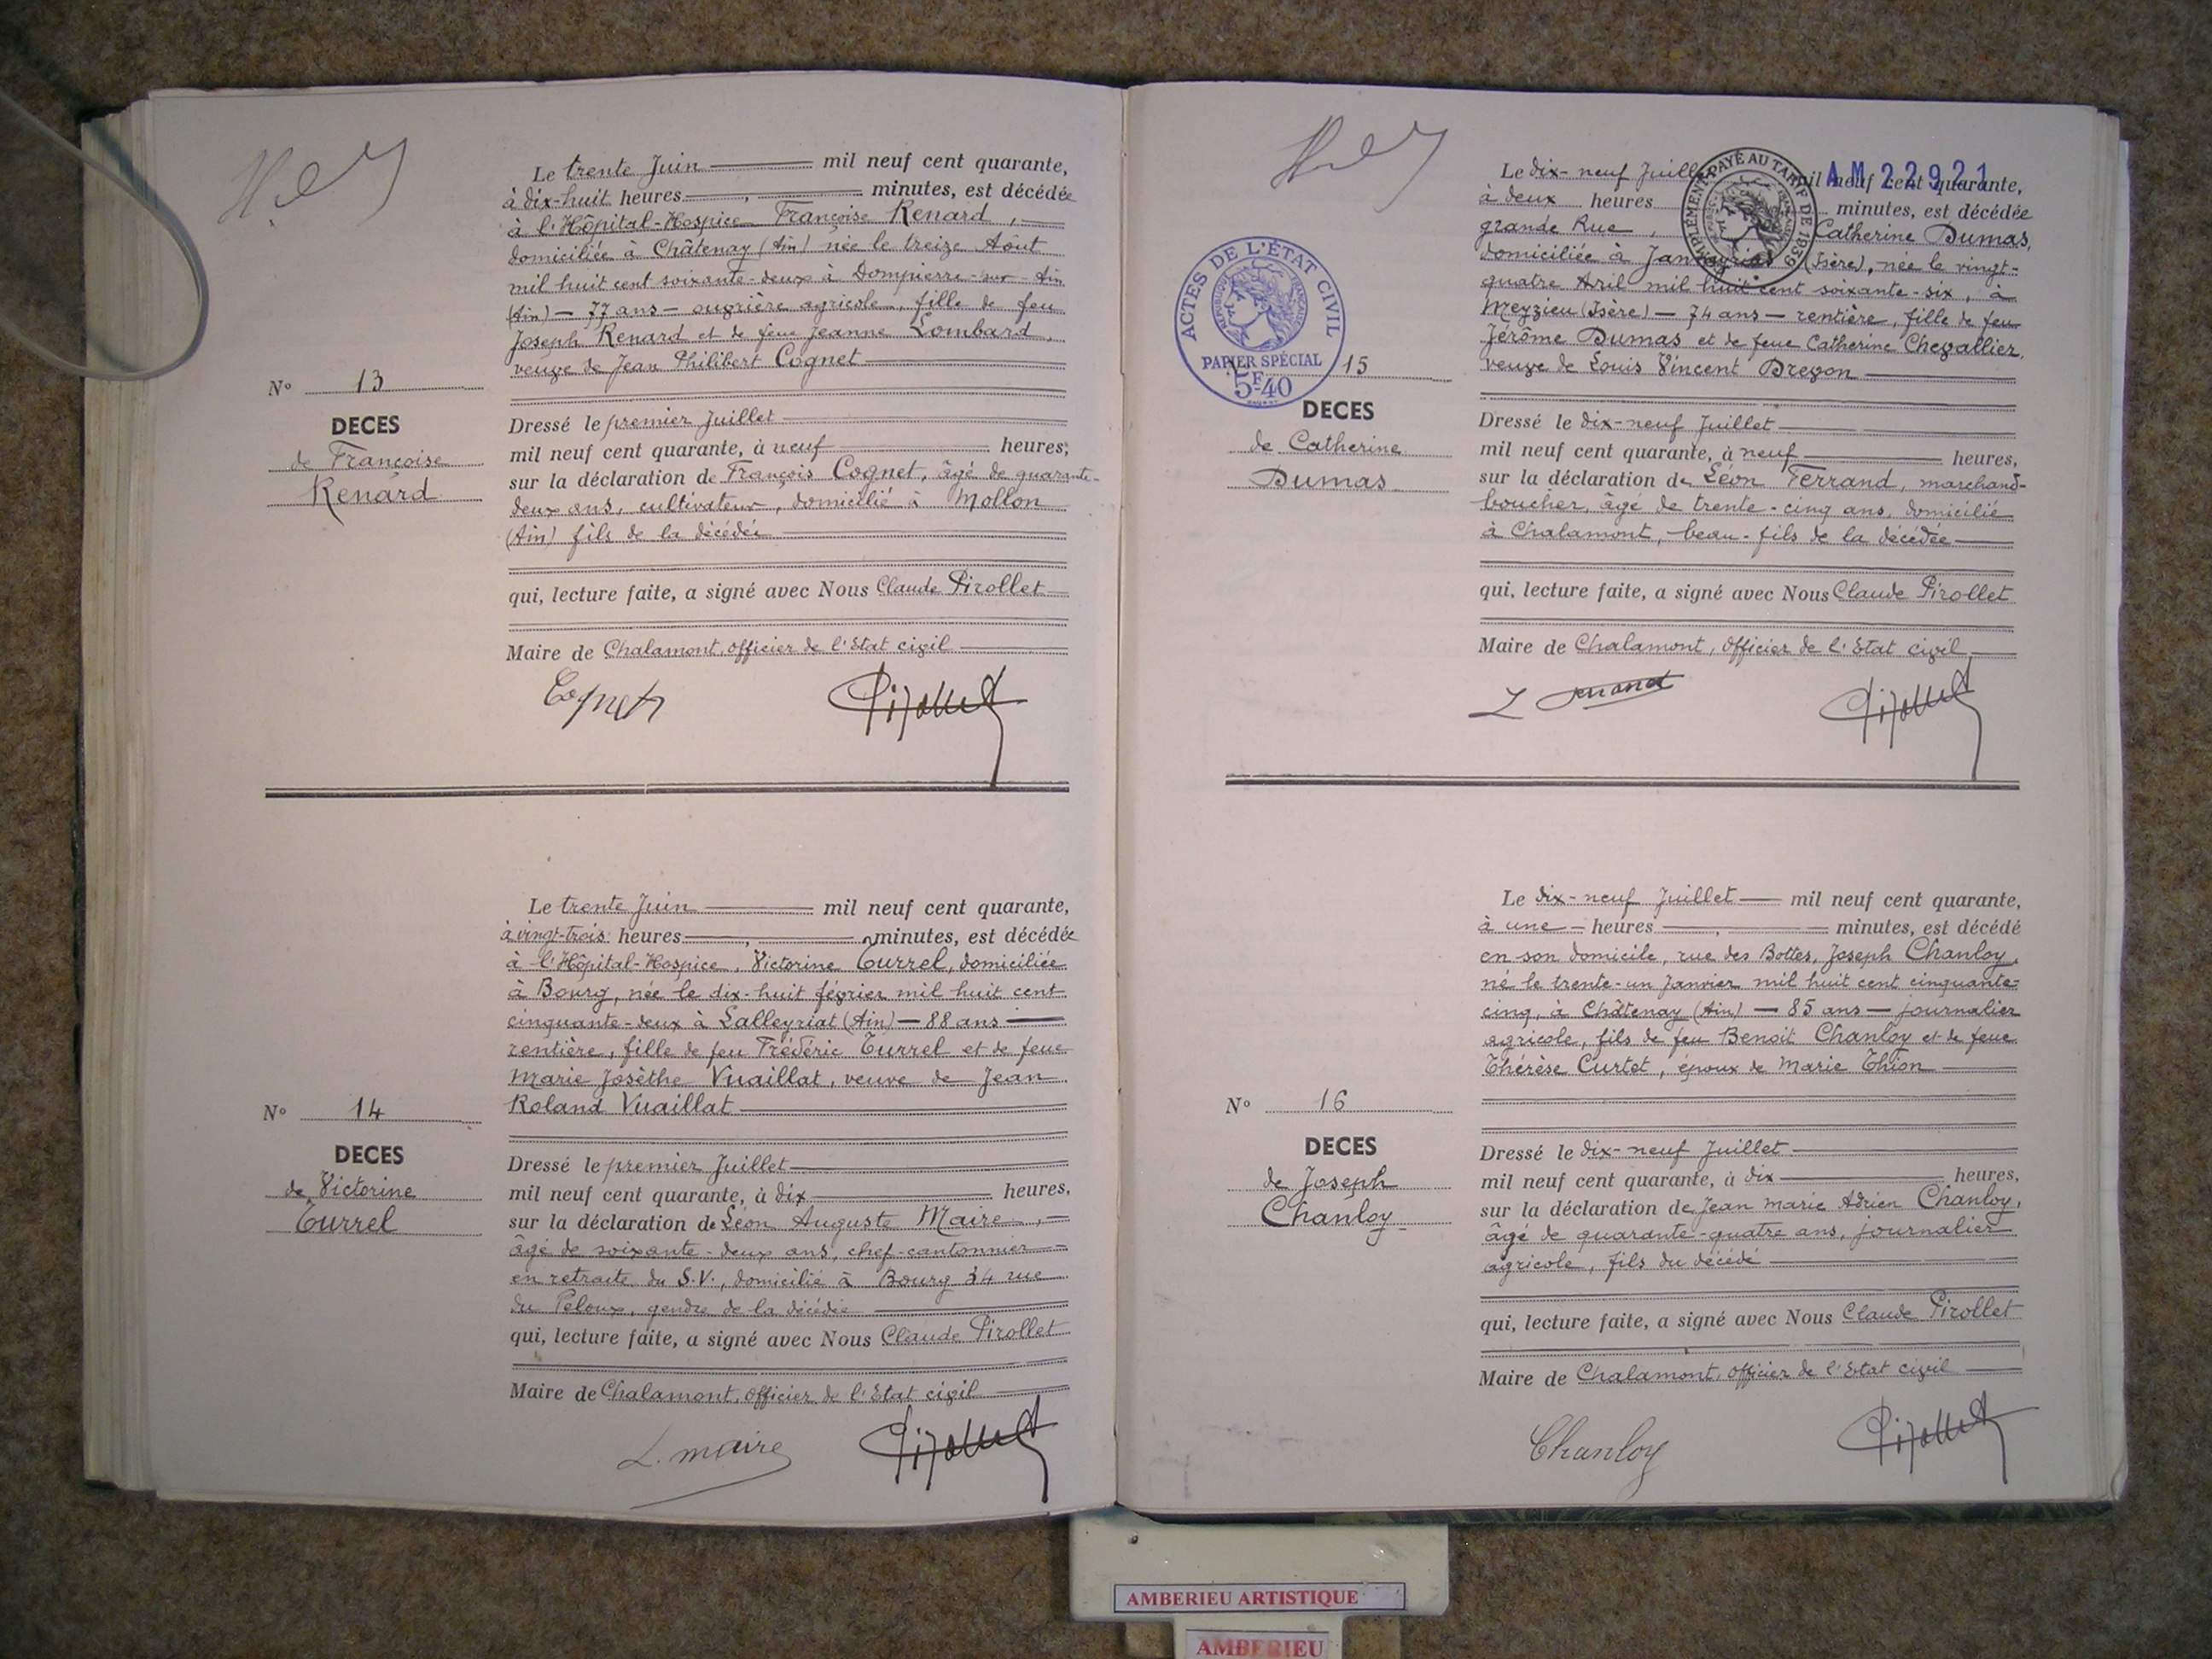 Le trente Juin mil neuf cent quarante,
à dix-huit heures, minutes, est décédée
à l'Hôpital-Hospice Françoise Renard,
domiciliée à Châtenay (Ain) née le treize Aôut
mil huit cent soixante-deux à Dompierre-sur-Ain
(Ain) — 77 ans — ouvrière agricole, fille de feu
Joseph Renard et de feue Jeanne Lombard,
veuve de Jean Philibert Cognet
No 13
DECES
de Françoise
Renard
Dressé le premier Juillet
mil neuf cent quarante, à neuf heures,
sur la déclaration de François Cognet, âgé de quarante-
deux ans, cultivateur, domicilié à Mollon
(Ain) fils de la décédée
qui, lecture faite, a signé avec Nous Claude Pirollet
Maire de Chalamont, officier de l'Etat civil
Cognet Pirollet
Le trente Juin mil neuf cent quarante,
à vingt-trois heures, minutes, est décédée
à l'Hôpital-Hospice, Victorine Turrel, domiciliée
à Bourg, née le dix-huit février mil huit cent
cinquante-deux à Lalleyriat (Ain) — 88 ans —
rentière, fille de feu Frédéric Turrel et de feue
Marie Josèthe Vuaillat, veuve de Jean
Roland Vuaillat
No 14
DECES
de Victorine
Turrel
Dressé le premier Juillet
mil neuf cent quarante, à dix heures,
sur la déclaration de Léon Auguste Maire,
âgé de soixante-deux ans, chef-cantonnier
en retraite du S.V., domicilié à Bourg 34 rue
du Peloux, gendre de la décédée
qui, lecture faite, a signé avec Nous Claude Pirollet
Maire de Chalamont, officier de l'Etat civil
L. maire Pirollet
AM 22921
COMPLÉMENT PAYÉ AU TARIF DE 1939
Le dix-neuf Juillet mil neuf cent quarante,
à deux heures minutes, est décédée
grande Rue, Catherine Dumas,
domiciliée à Janneyrias (Isère), née le vingt-
quatre Avril mil huit cent soixante-six, à
Meyzieu (Isère) — 74 ans — rentière, fille de feu
Jérôme Dumas et de feue Catherine Chevallier,
veuve de Louis Vincent Drevon
ACTES DE L'ÉTAT CIVIL
RÉPUBLIQUE FRANÇAISE
PAPIER SPÉCIAL
5F40
15
DECES
de Catherine
Dumas
Dressé le dix-neuf Juillet
mil neuf cent quarante, à neuf heures,
sur la déclaration de Léon Ferrand, marchand-
boucher, âgé de trente-cinq ans, domicilié
à Chalamont, beau-fils de la décédée
qui, lecture faite, a signé avec Nous Claude Pirollet
Maire de Chalamont, officier de l'Etat civil
Pirollet
Le dix-neuf Juillet mil neuf cent quarante,
à une heures minutes, est décédé
en son domicile, rue des Bottes, Joseph Chanloy,
né le trente-un Janvier mil huit cent cinquante-
cinq, à Châtenay (Ain) — 85 ans — journalier
agricole, fils de feu Benoit Chanloy et de feue
Thérèse Curtet, époux de Marie Thion
No 16
DECES
de Joseph
Chanloy
Dressé le dix-neuf Juillet
mil neuf cent quarante, à dix heures,
sur la déclaration de Jean Marie Adrien Chanloy,
âgé de quarante-quatre ans, journalier
agricole, fils du décédé
qui, lecture faite, a signé avec Nous Claude Pirollet
Maire de Chalamont, officier de l'Etat civil
Chanloy Pirollet
AMBERIEU ARTISTIQUE
AMBERIEU